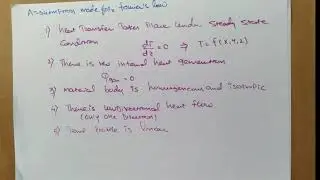 Assumption made for Fourier's law
1) Heat Transfer Takes Place under steady state
Condition dT/dz = 0 ⇒ T = f(x,y,z)
2) There is no internal heat generation
Qgen = 0
3) material body is homogeneous and isotropic
4) There is unidirectional heat flow
(only one direction)
5) is linear